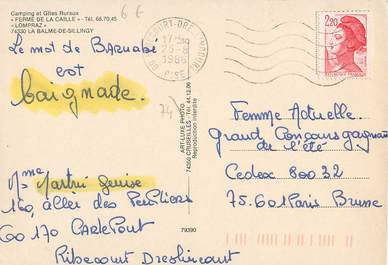 Camping et Gîtes Ruraux
« FERME DE LA CAILLE » - Tél. 68.70.45
« LOMPRAZ »
74330 LA BALME-DE-SILLINGY
6 €
Le mot de Barnabe
est
baignade.
17 H
25-8
1986
OISE
2,20
ART-LUXE PHOTO
74350 CRUSEILLES - Tél. 44.12.09
Reproduction interdite
74
79390
Mme Martin Denise
160, aller des Peupliers
60 170 CARLEPONT
Ribecourt Dreslincourt
Femme Actuelle
grand Concours gagnant
de l'été
Cedex 800 32
75.601 Paris Brune